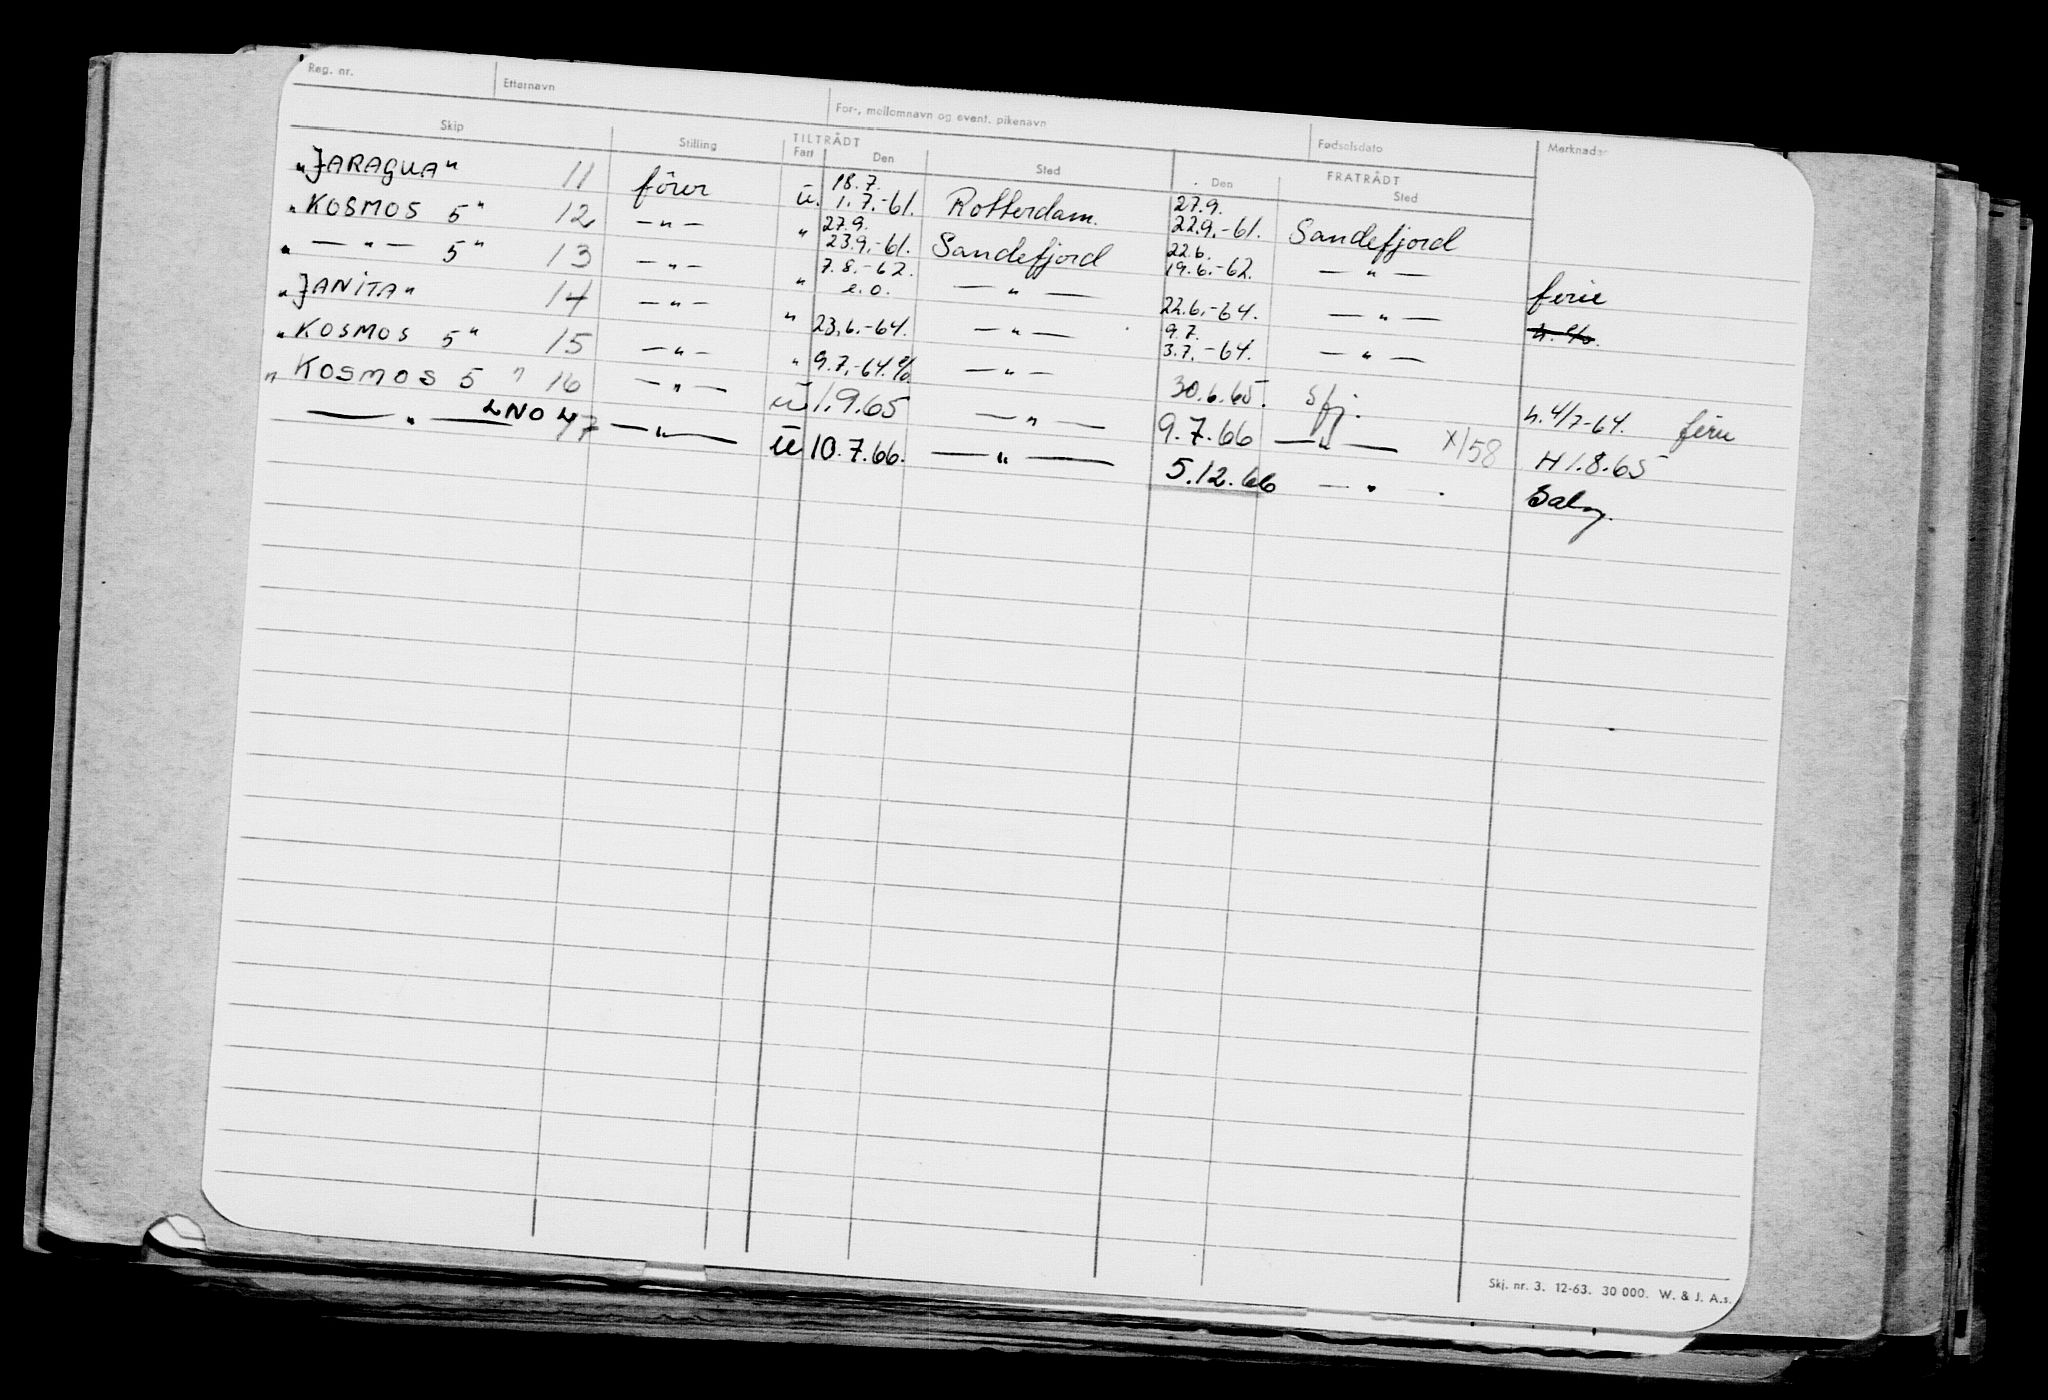 Reg. nr. Etternavn For-, mellomnavn og event. pikenavn Fødselsdato Merknader
Skip Stilling TILTRÅDT FRATRÅDT
Fart Den Sted Den Sted
"JARAGUA" 11 fører u. 18.7. 1.7.-61. Rotterdam. 27.9. 22.9.-61. Sandefjord
"KOSMOS 5" 12 — " — " 27.9. 23.9.-61. Sandefjord 22.6. 19.6.-62. — " — ferie
" — " — 5" 13 — " — " 7.8.-62. e.o. — " — 22.6.-64. — " —
"JANITA" 14 — " — " 23.6.-64. — " — 9.7. 3.7.-64. — " —
"KOSMOS 5" 15 — " — " 9.7.-64. — " — 30.6.65. Sfj. h. 4/7-64. ferie
"KOSMOS 5" 16 — " — u 1.9.65 — " — 9.7.66 — " — X/58 H 1.8.65
— " — LNOH 17 — " — u 10.7.66. — " — 5.12.66 — " — Salg.
Skj. nr. 3. 12-63. 30 000. W. & J. A.s.